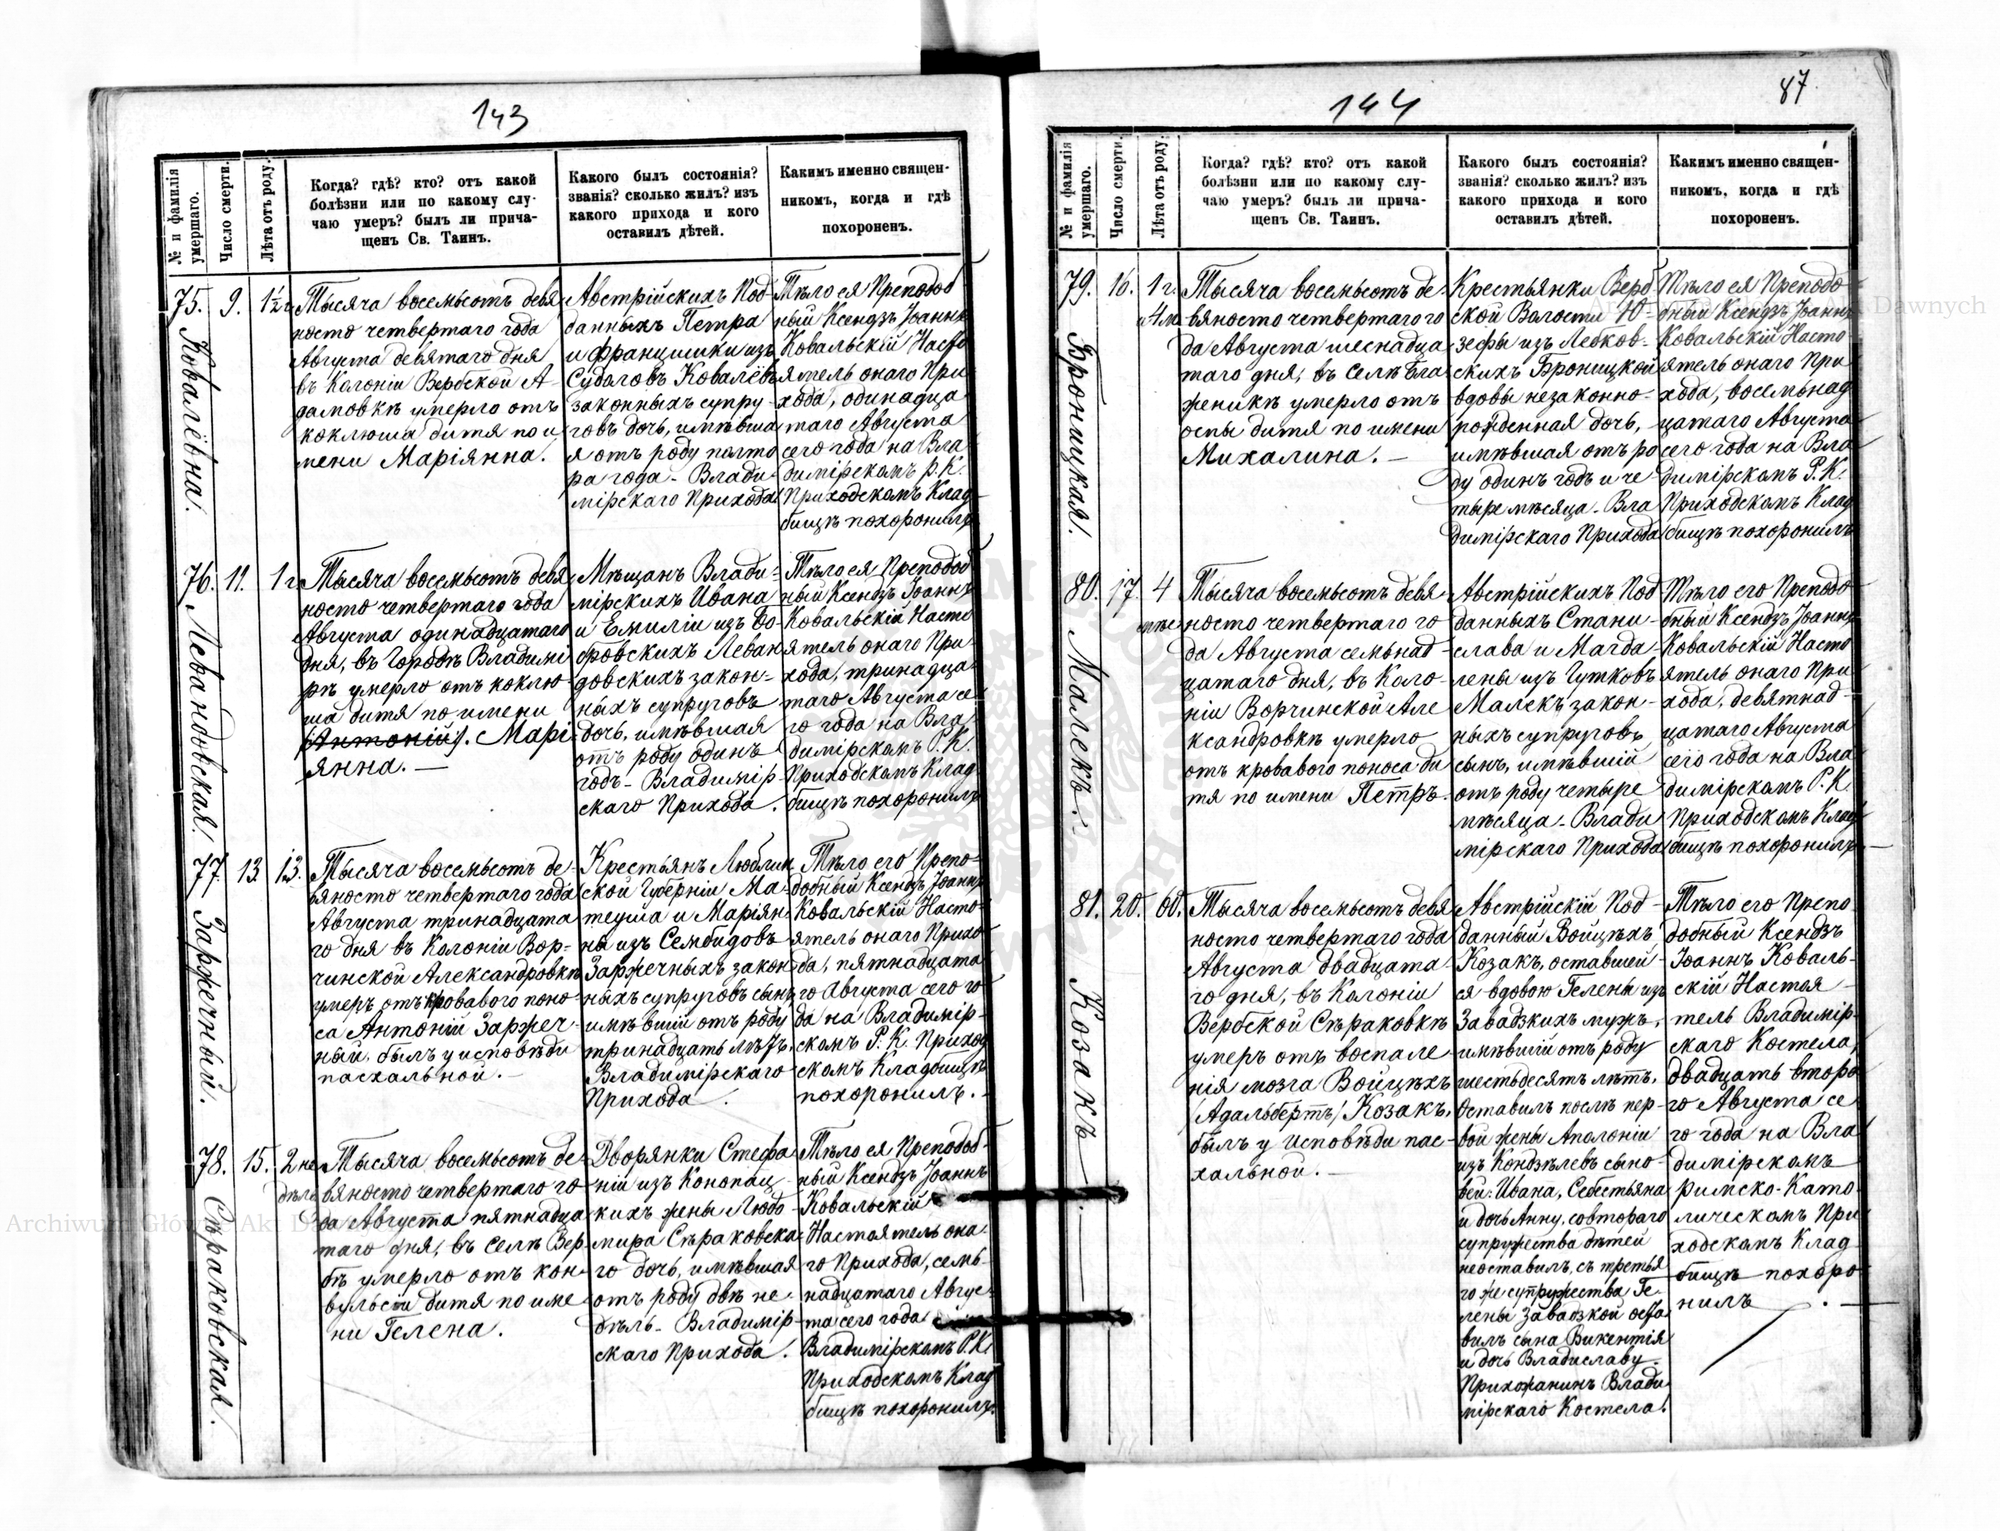 143
№ и фамилія умершаго.
Число смерти.
Лѣта отъ роду.
Когда? гдѣ? кто? отъ какой
болѣзни или по какому слу-
чаю умеръ? былъ ли прича-
щенъ Св. Таинъ.
Какого былъ состоянія?
званія? сколько жилъ? изъ
какого прихода и кого
оставилъ дѣтей.
Какимъ именно священ-
никомъ, когда и гдѣ
похороненъ.
75.
Ковалёвна.
9.
1½ г.
Тысяча восемьсотъ девя
носто четвертаго года
Августа девятаго дня
въ Колоніи Вербской А-
дамовкѣ умерло отъ
коклюша дитя по и
мени Маріянна.
Австрійскихъ Под-
данныхъ Петра
и Францишки изъ
Судаговъ Ковалёвъ
законныхъ супру-
говъ дочь, имѣвша
я отъ роду полто
ра года - Влади-
мірскаго Прихода
Тѣло ея Преподоб
ный Ксендзъ Іоаннъ
Ковальскій Насто
ятель онаго При
хода, одинадца
таго Августа
сего года на Вла
димірскомъ Р.К.
Приходскомъ Клад
бищѣ похоронилъ
76.
Левандовская.
11.
1 г.
Тысяча восемьсотъ девя
носто четвертаго года
Августа одинадцатаго
дня, въ Городѣ Владимі
рѣ умерло отъ коклю-
ша дитя по имени
/Антоній/. Марі
янна. —
Мѣщанъ Влади-
мірскихъ Ивана
и Емиліи изъ Бо-
бровскихъ Леван
довскихъ закон-
ныхъ супруговъ
дочь, имѣвшая
отъ роду одинъ
годъ - Владимір
скаго Прихода.
Тѣло ея Преподоб
ный Ксендзъ Іоаннъ
Ковальскій Насто
ятель онаго При-
хода, тринадца
таго Августа се-
го года на Вла
димірскомъ Р.К.
Приходскомъ Клад
бищѣ похоронилъ
77.
Заржечный.
13
13.
Тысяча восемьсотъ де-
вяносто четвертаго года
Августа тринадцата
го дня въ Колоніи Вор-
чинской Александровкѣ
умеръ отъ кровавого поно-
са Антоній Заржеч-
ный. былъ у исповѣди
пасхальной. —
Крестьянъ Люблин
ской Губерніи Ма-
теуша и Маріян
ны изъ Сембидовъ
Заржечныхъ закон
ныхъ супруговъ сынъ
имѣвшій отъ роду
тринадцать лѣтъ.
Владимірскаго
Прихода.
Тѣло его Препо-
добный Ксендзъ Іоаннъ
Ковальскій Насто-
ятель онаго Прихо-
да, пятнадцата
го Августа сего го
да на Владимір-
скомъ Р. К. Приход
скомъ Кладбищѣ
похоронилъ. —
78.
Сѣраковская.
15.
2 не
дѣли
Тысяча восемьсотъ де
вяносто четвертаго го-
да Августа пятнадца
таго дня, въ селѣ Вер
бѣ умерло отъ кон-
вульсіи дитя по име
ни Гелена.
Дворянки Стефа
ніи изъ Конопац-
кихъ жены Любо-
мира Сѣраковска
го дочь, имѣвшая
отъ роду двѣ не-
дѣли - Владимір-
скаго Прихода.
Тѣло ея Преподоб-
ный Ксендзъ Іоаннъ
Ковальскій
Настоятель она-
го Прихода, семь-
надцатаго Авгус-
та сего года
Владимірскомъ Р.К.
Приходскомъ Клад
бищѣ похоронилъ.
144
87.
№ и фамилія умершаго.
Число смерти.
Лѣта отъ роду.
Когда? гдѣ? кто? отъ какой
болѣзни или по какому слу-
чаю умеръ? былъ ли прича-
щенъ Св. Таинъ.
Какого былъ состоянія?
званія? сколько жилъ? изъ
какого прихода и кого
оставилъ дѣтей.
Какимъ именно священ-
никомъ, когда и гдѣ
похороненъ.
79.
Броницкая.
16.
1 г.
4 м.
Тысяча восемьсотъ де-
вяносто четвертаго го
да Августа шеснадца
таго дня, въ селѣ Бла
женикѣ умерло отъ
оспы дитя по имени
Михалина. —
Крестьянки Верб
ской Волости Ю-
зефы изъ Лебков-
скихъ Броницкой
вдовы незаконно-
рожденная дочь,
имѣвшая отъ ро
ду одинъ годъ и че
тыре мѣсяца - Вла
димірскаго Прихода
Тѣло ея Преподо-
бный Ксендзъ Іоаннъ
Ковальскій Насто
ятель онаго При
хода, восемьнад
цатаго Августа
сего года на Вла
димірскомъ Р.К.
Приходскомъ Клад
бищѣ похоронилъ
80.
Малекъ.
17.
4
Тысяча восемьсотъ девя
носто четвертаго го
да Августа семьнад
цатаго дня, въ Коло-
ніи Ворчинской Але
ксандровкѣ умерло
отъ кровавого поноса ди
тя по имени Петръ.
Австрійскихъ Под
данныхъ Стани-
слава и Магда
лены изъ Гутковъ
Малекъ закон-
ныхъ супруговъ
сынъ, имѣвшій
отъ роду четыре
мѣсяца - Влади
мірскаго Прихода
Тѣло его Преподо
бный Ксендзъ Іоаннъ
Ковальскій Насто
ятель онаго При
хода, девятнад-
цатаго Августа
сего года на Вла
димірскомъ Р.К.
Приходскомъ Клад
бищѣ похоронилъ.
81.
Козакъ
20.
60.
Тысяча восемьсотъ девя
носто четвертаго года
Августа двадцата
го дня, въ Колоніи
Вербской Сѣраковкѣ
умеръ отъ воспале-
нія мозга Войцѣхъ
/Адальбертъ/ Козакъ.
былъ у исповѣди пас-
хальной. —
Австрійскій Под-
данный Войцѣхъ
Козакъ, оставшей-
ся вдовою Гелены изъ
Завадзкихъ мужъ,
имѣвшій отъ роду
шестьдесятъ лѣтъ.
Оставилъ послѣ пер-
вой жены Аполоніи
изъ Кондзѣлевъ сыно-
вей: Ивана, Себестьяна
и дочь Анну, со втораго
супружества дѣтей
неоставилъ, съ третья
го же супружества Ге-
лены Завадзкой оста
вилъ сына Викентія
и дочь Владиславу.
Прихожанинъ Влади
мірскаго Костела.
Тѣло его Препо-
добный Ксендзъ
Іоаннъ Коваль-
скій Настоя-
тель Владимір-
скаго Костела,
двадцать второ
го Августа се
го года на Вла
димірскомъ
Римско-Като-
лическомъ При
ходскомъ Клад
бищѣ похоро
нилъ. —
Archiwum Główne Akt Dawnych
Archiwum Główne Akt Dawnych